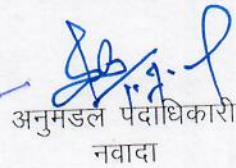 अनुमंडल पदाधिकारी
नवादा